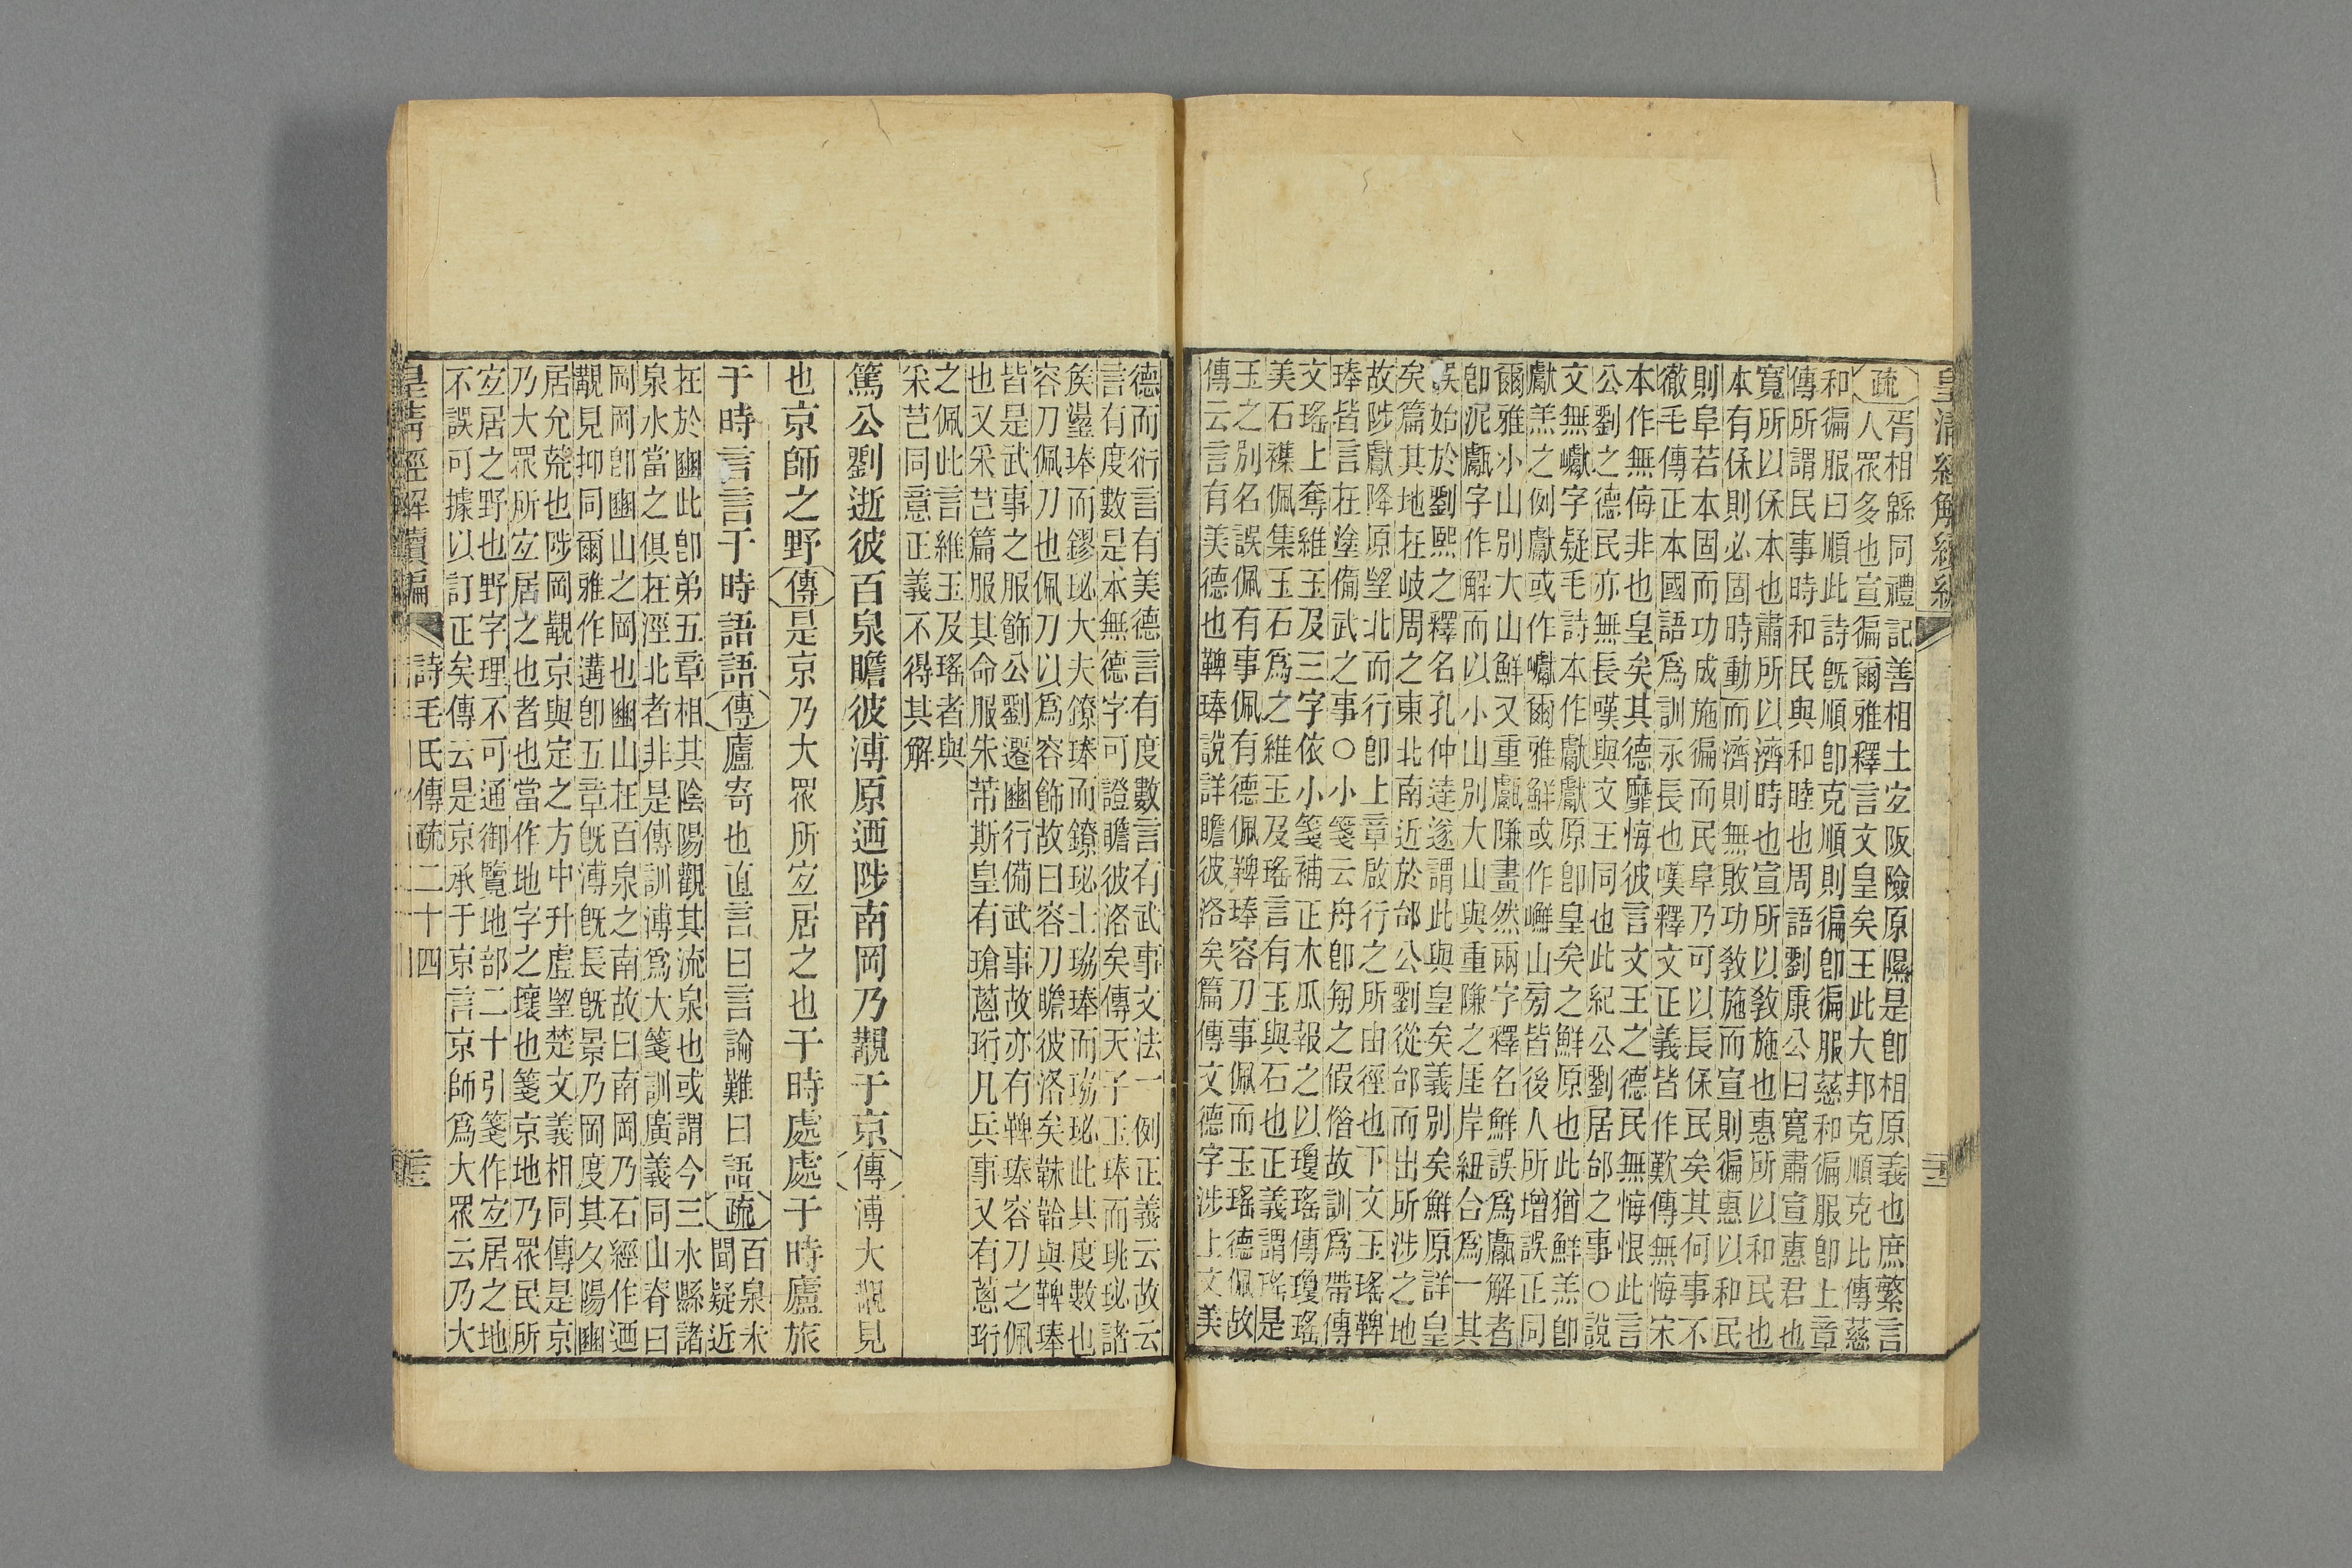 皇清經解續編
疏
胥相緜同禮記善相土宐阪險原隰是卽相原義也庶繁言
人眾多也宣徧爾雅釋言文皇矣王此大邦克順克比傳慈
和徧服曰順此詩旣順卽克順則徧卽徧服慈和徧服卽上章
傳所謂民事時和民與和睦也周語劉康公曰寬肅宣惠君也
寬所以保本也肅所以濟時也宣所以敎施也惠所以和民也
本有保則必固時動而濟則無敗功敎施而宣則徧惠以和民
則阜若本固而功成施徧而民阜乃可以長保民矣其何事不
徹毛傳正本國語爲訓永長也嘆釋文正義皆作歎傳無悔宋
本作無侮非也皇矣其德靡悔彼言文王之德民無悔恨此言
公劉之德民亦無長嘆與文王同也此紀公劉居邰之事○說
文無巘字疑毛詩本作獻獻原卽皇矣之鮮原也此猶鮮羔卽
獻羔之例獻或作巘爾雅鮮或作嶰山㓲皆後人所增誤正同
爾雅小山別大山鮮又重甗隒畫然兩字釋名鮮誤爲甗解者
卽泥甗字作解而以小山別大山與重隒之厓岸紐合爲一其
誤始於劉熙之釋名孔仲達遂謂此與皇矣義別矣鮮原詳皇
矣篇其地在岐周之東北南近於邰公劉從邰而出所涉之地
故陟獻降原望北而行卽上章啟行之所由徑也下文玉瑤鞞
琫皆言在塗僃武之事○小箋云舟卽匊之假俗故訓爲帶傳
文瑤上奪維玉及三字依小箋補正木瓜報之以瓊瑤傳瓊瑤
美石襍佩集玉石爲之維玉及瑤言有玉與石也正義謂瑤是
玉之別名誤佩有事佩有德佩鞞琫容刀事佩而玉瑤德佩故
傳云言有美德也鞞琫說詳瞻彼洛矣篇傳文德字涉上文美
德而衍言有美德言有度數言有武事文法一例正義云故云
言有度數是本無德字可證瞻彼洛矣傳天子玉琫而珧珌諸
矦璗琫而鏐珌大夫鐐琫而鐐珌士珕琫而珕珌此其度數也
容刀佩刀也佩刀以爲容飾故曰容刀瞻彼洛矣韎韐與鞞琫
皆是武事之服飾公劉遷豳行僃武事故亦有鞞琫容刀之佩
也又采芑篇服其命服朱芾斯皇有瑲蔥珩凡兵事又有蔥珩
之佩此言維玉及瑤者與
采芑同意正義不得其解
篤公劉逝彼百泉瞻彼溥原迺陟南岡乃覯于京傳溥大覯見
也京師之野傳是京乃大眾所宐居之也于時處處于時廬旅
于時言言于時語語傳廬寄也直言曰言論難曰語疏
百泉未
聞疑近
在於豳此卽弟五章相其陰陽觀其流泉也或謂今三水縣諸
泉水當之俱在涇北者非是傳訓溥爲大箋訓廣義同山脊曰
岡岡卽豳山之岡也豳山在百泉之南故曰南岡乃石經作迺
覯見抑同爾雅作遘卽五章旣溥旣長旣景乃岡度其夕陽豳
居允荒也陟岡覯京與定之方中升虛望楚文義相同傳是京
乃大眾所宐居之也者也當作地字之壞也箋京地乃眾民所
宐居之野也野字理不可通御覽地部二十引箋作宐居之地
不誤可據以訂正矣傳云是京承于京言京師爲大眾云乃大
皇清經解續編
詩毛氏傳疏二十四